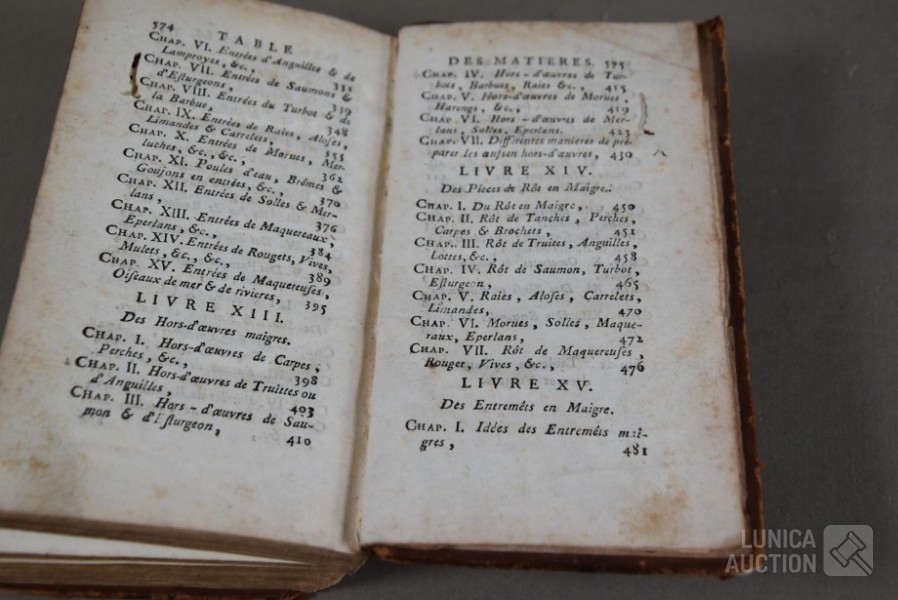 574 TABLE
CHAP. VI. Entrées d'Anguilles & de
Lamproyes, &c., 331
CHAP. VII. Entrées de Saumons &
d'Esturgeons, 339
CHAP. VIII. Entrées du Turbot & de
la Barbue, 348
CHAP. IX. Entrées de Raies, Aloses,
Limandes & Carrelets, 355
CHAP. X. Entrées de Morues, Mer-
luches, &c., &c., 362
CHAP. XI. Poules d'eau, Brêmes &
Goujons en entrées, &c., 370
CHAP. XII. Entrées de Solles & Mer-
lans, 376
CHAP. XIII. Entrées de Maquereaux,
Eperlans, &c., 384
CHAP. XIV. Entrées de Rougets, Vives,
Mulets, &c., &c., 389
CHAP. XV. Entrées de Maquereuses,
Oiseaux de mer & de rivieres, 395
LIVRE XIII.
Des Hors-d'œuvres maigres.
CHAP. I. Hors-d'œuvres de Carpes,
Perches, &c., 398
CHAP. II. Hors-d'œuvres de Truittes ou
d'Anguilles, 403
CHAP. III. Hors-d'œuvres de Sau-
mon & d'Esturgeon, 410
DES MATIERES. 575
CHAP. IV. Hors-d'œuvres de Tur-
bots, Barbues, Raies &c., 415
CHAP. V. Hors-d'œuvres de Morues,
Harengs, &c., 419
CHAP. VI. Hors-d'œuvres de Mer-
lans, Solles, Eperlans. 423
CHAP. VII. Différentes manieres de pré-
parer les œufs en hors-d'œuvres, 430
LIVRE XIV.
Des Pieces de Rôt en Maigre.
CHAP. I. Du Rôt en Maigre, 450
CHAP. II. Rôt de Tanches, Perches,
Carpes & Brochets, 451
CHAP. III. Rôt de Truites, Anguilles,
Lottes, &c., 458
CHAP. IV. Rôt de Saumon, Turbot,
Esturgeon, 465
CHAP. V. Raies, Aloses, Carrelets,
Limandes, 470
CHAP. VI. Morues, Solles, Maque-
raux, Eperlans, 472
CHAP. VII. Rôt de Maquereuses,
Rouget, Vives, &c., 476
LIVRE XV.
Des Entremêts en Maigre.
CHAP. I. Idées des Entremêts mai-
gres, 481
LUNICA
AUCTION